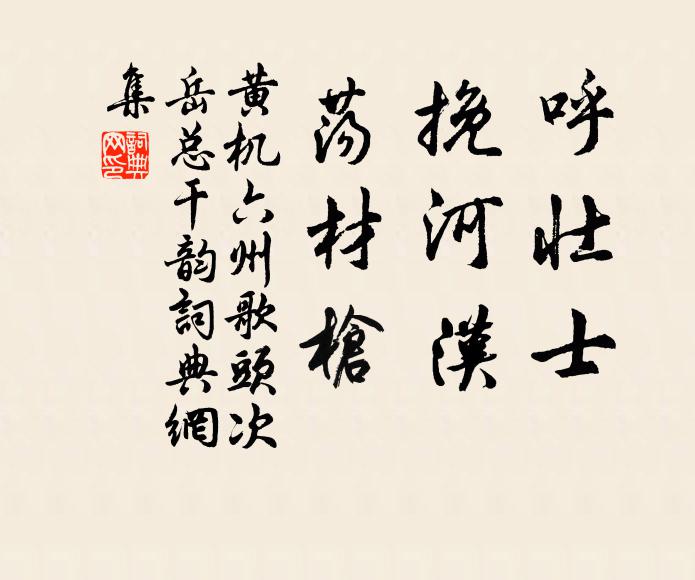 呼壮士
挽河漢
荡材槍
黄机六州歌頭次
岳总干韵詞典網
集
詞典
网印